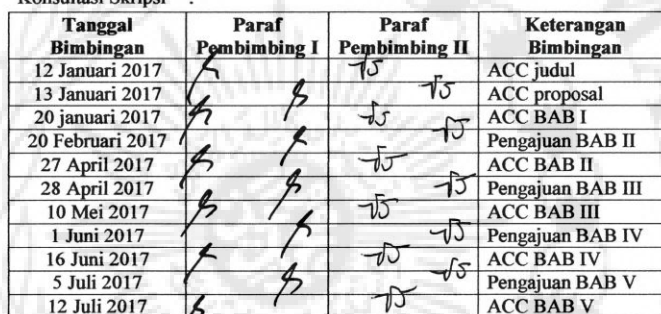 Konsultasi Skripsi :
Tanggal Bimbingan Paraf Pembimbing I Paraf Pembimbing II Keterangan Bimbingan
12 Januari 2017 ACC judul
13 Januari 2017 ACC proposal
20 januari 2017 ACC BAB I
20 Februari 2017 Pengajuan BAB II
27 April 2017 ACC BAB II
28 April 2017 Pengajuan BAB III
10 Mei 2017 ACC BAB III
1 Juni 2017 Pengajuan BAB IV
16 Juni 2017 ACC BAB IV
5 Juli 2017 Pengajuan BAB V
12 Juli 2017 ACC BAB V